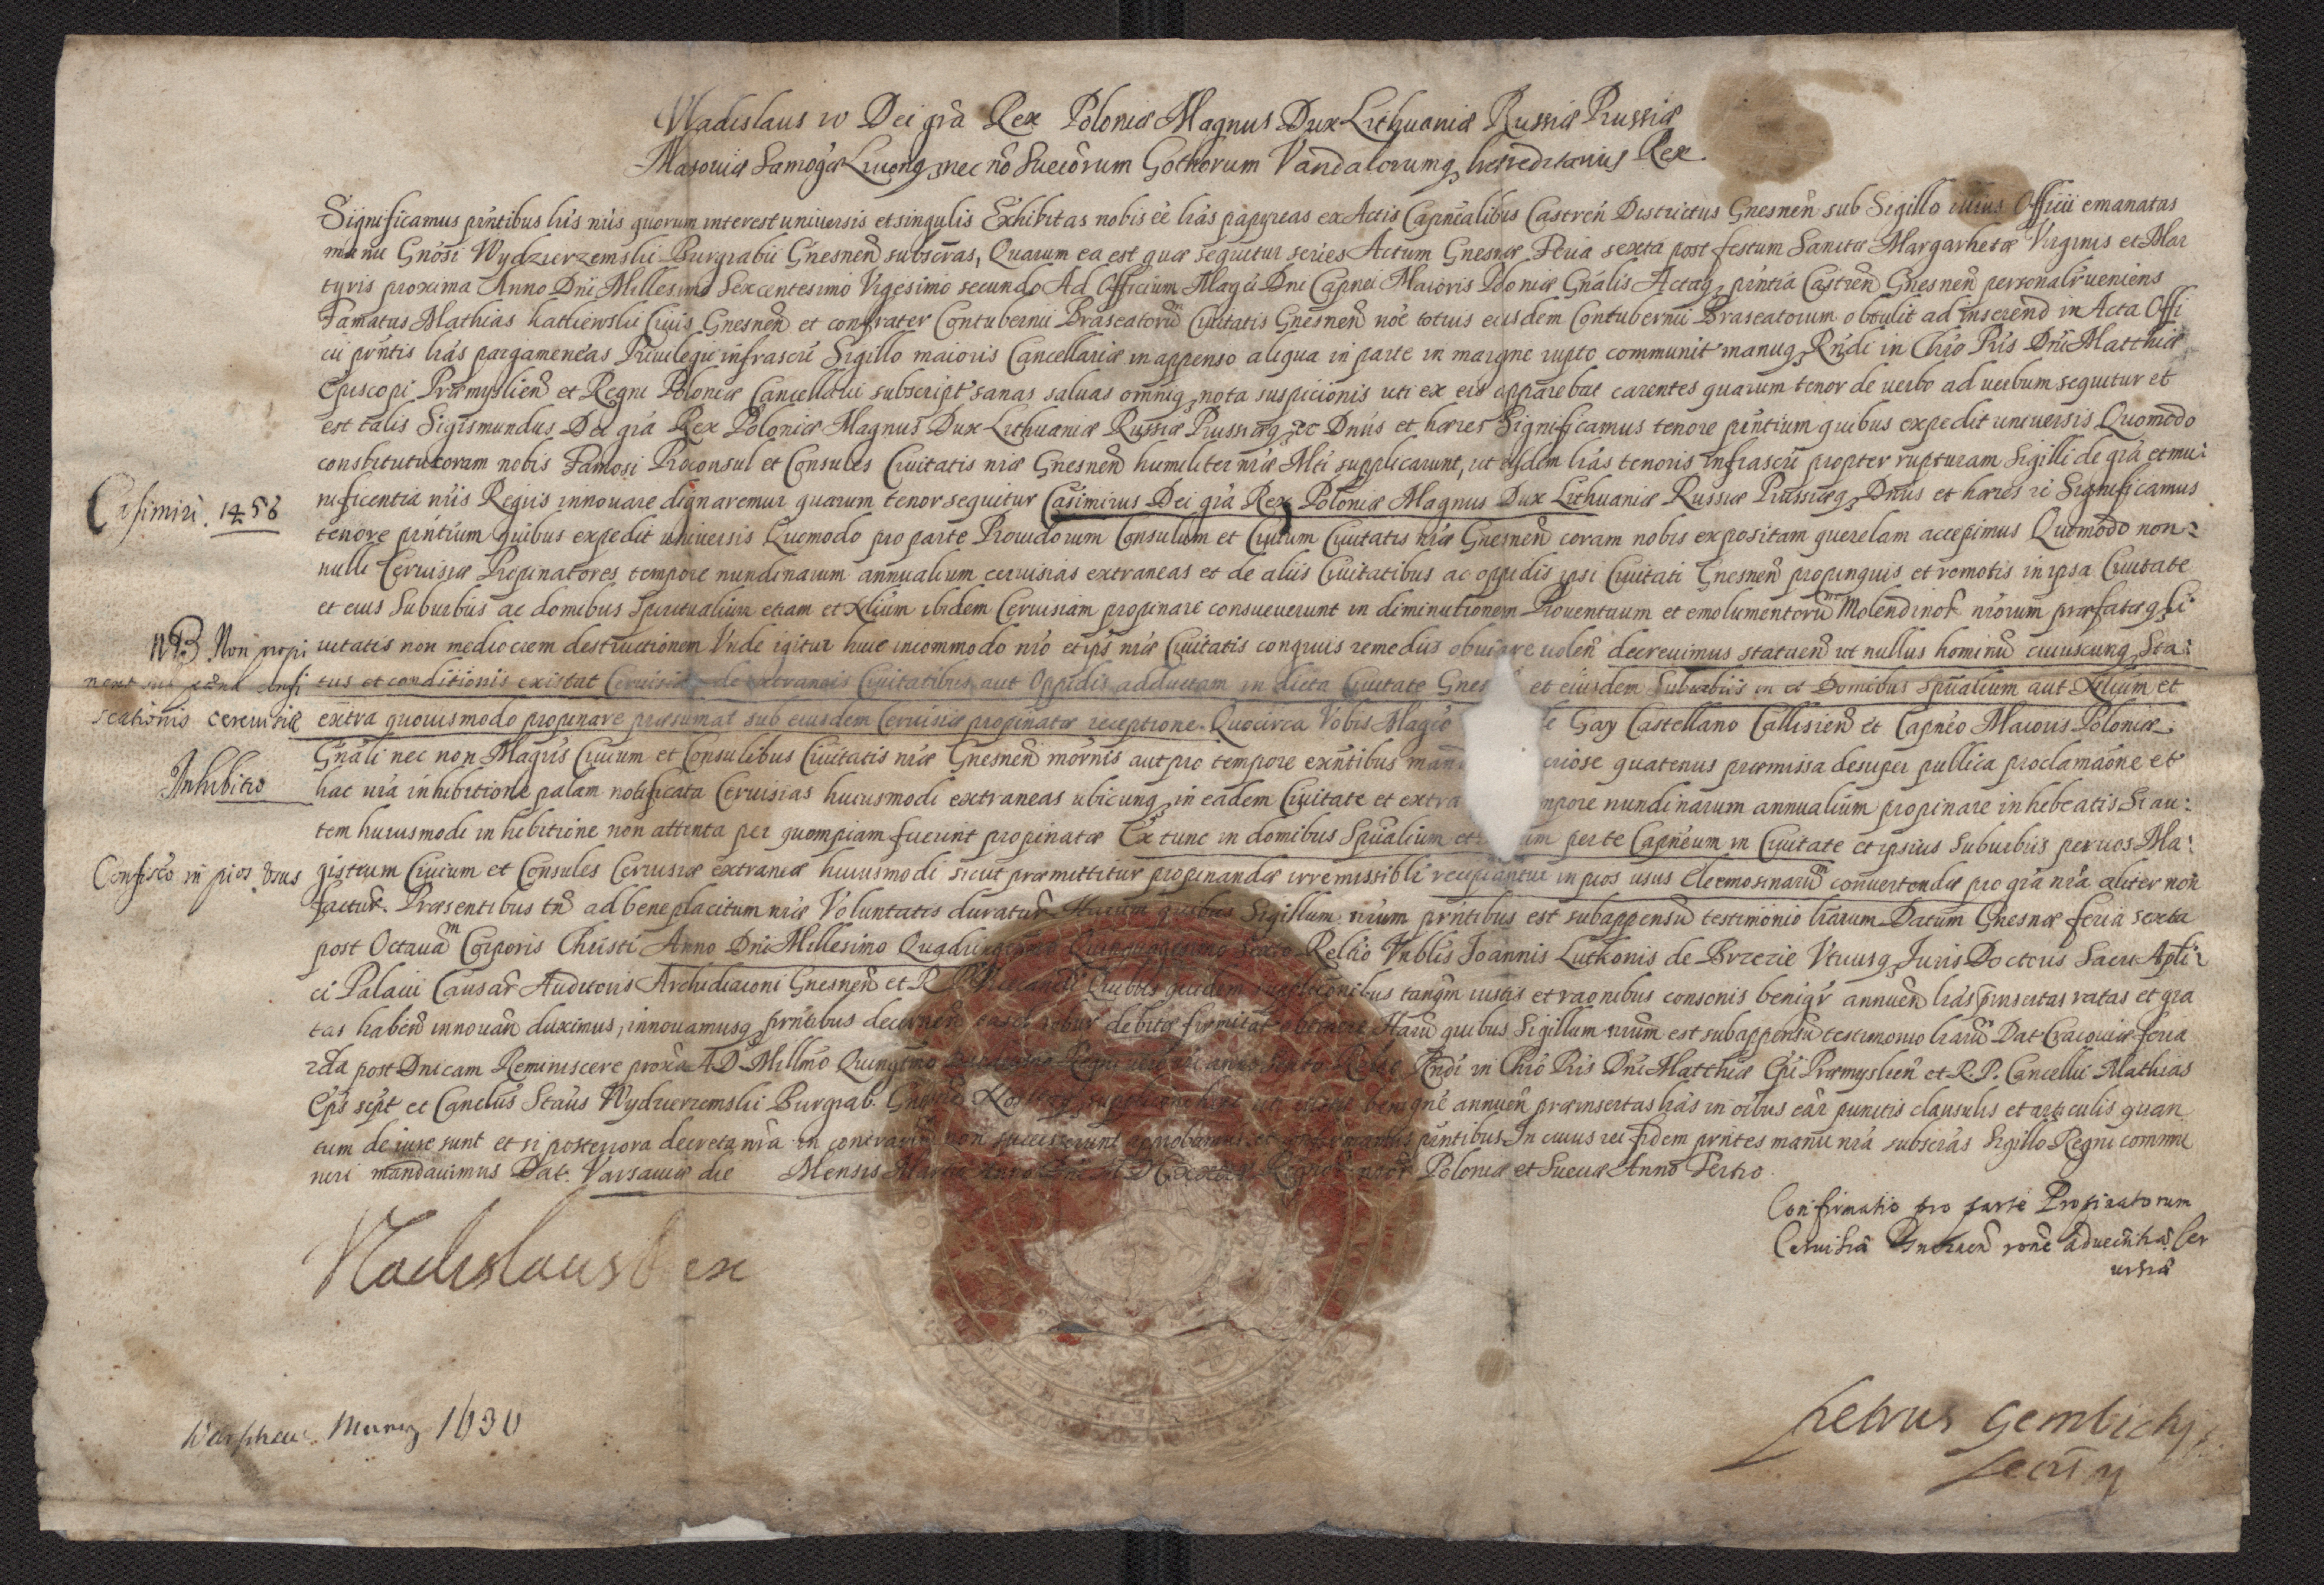 Vladislaus IV Dei grã Rex Poloniæ Magnus Dux Lithuaniæ Russiæ Prussiæ
Masoviæ Samogæ Livonq, nec nõ Suecõrum Gothorum Vandalorumq, hæreditarius Rex.
Significamus pñtibus lr̃is nr̃is quorum interest universis et singulis Exhibitas nobis eẽ lr̃as papyreas ex Actis Capñealibus Castreñ Districtus Gnesneñ sub Sigillo Officii emanatas
manu Gnõsi Wydzierzewskii Burgrabii Gnesneñ subscr̃as, Quarum ea est quæ sequitur series Actum Gnesnæ Feria sexta post festum Sanctæ Margarhetæ Virginis et Mar
tyris proxima Anno Dñi Millesimo Sexcentesimo Vigesimo secundo Ad Officium Magci Dni Capnei Maioris Poloniæ Gñalis Actaq, pñtia Castreñ Gnesneñ personalr̃ veniens
Famatus Mathias Civis Gnesneñ et confrater Contubernii Braseatorũ Civitatis Gnesneñ noẽ totius eiusdem Contubernii Braseatorum obtulit ad inserend in Acta Offi
cii pñtis lr̃as pargameneas Privilegii infrascr̃i Sigillo maioris Cancellariæ in appenso aliqua in parte in margine rupto communit manuq, Rñdi in Chr̃o Pr̃is Dñi Matthiæ
Episcopi Præmyslieñ et Regni Poloniæ Cancellarii subscript sanas salvas omniq, nota suspicionis uti ex eis apparebat carentes quarum tenor de verbo ad verbum sequitur et
est talis Sigismundus Dei grã Rex Poloniæ Magnus Dux Lithuaniæ Russiæ Prussiæq, ec Dñus et hæres Significamus tenore pñtium quibus expedit universis Quomodo
constituti coram nobis Famosi Proconsul et Consules Civitatis nr̃æ Gnesneñ humiliter nr̃æ Mti supplicarunt, ut eisdem lr̃as tenoris infrascr̃i propter rupturam Sigilli de grã et mu:
nificentia nr̃is Regiis innovare dignaremur quarum tenor sequitur Casimirus Dei grã Rex Poloniæ Magnus Dux Lithuaniæ Russiæ Prussiæq, Dñus et hæres Significamus
Casimiri. 1456
tenore pñtium quibus expedit universis Quomodo pro parte Providorum Consulum et Civium Civitatis nr̃æ Gnesneñ coram nobis expositam querelam accepimus Quomodo non:
nulli Cervisiæ Propinatores tempore nundinarum annualium cervisias extraneas et de aliis Civitatibus ac oppidis ipsi Civitati Gnesneñ propinquis et remotis in ipsa Civitate
et eius Suburbiis ac domibus Spiritualium etiam et Xlium ibidem Cervisiam propinare consueverunt in diminutionem Proventuum et emolumentorũ Molendinor̃ nr̃orum præfatæq, Ci:
NB Non propi
vitatis non mediocrem destructionem Unde igitur huic incommodo nr̃o et ips nr̃æ Civitatis congruis remediis obviare voleñ decrevimus statueñ ut nullus hominũ cuiuscunq, Sta:
nent sub pæna Confi
tus et conditionis existat Cervisiã de extraneis Civitatibus aut Oppidis adductam in dicta Civitate Gnes et eiusdem Suburbiis in et Domibus spũalium aut Xlium et
scationis cerevisiæ
extra quovismodo propinare præsumat sub eiusdem Cervisiæ propinatæ receptione. Quocirca Vobis Magco Gay Castellano Callisieñ et Capñeo Maioris Poloniæ
Gñali nec non Magris Civium et Consulibus Civitatis nr̃æ Gnesneñ modernis aut pro tempore exñtibus man riose quatenus præmissa desuper publica proclamaõne et
Inhibitio
hac nr̃a inhibitione palam notificata Cervisias huiusmodi extraneas ubicunq, in eadem Civitate et extra mpore nundinarum annualium propinare inhibeatis Si au:
tem huiusmodi inhibitione non attenta per quempiam fuerint propinatæ Ex tunc in domibus Spũalium et um per te Capñeum in Civitate et ipsius Suburbiis per vos Ma:
Confisco in pios usus
gistrum Civium et Consules Cervisiæ extraneæ huiusmodi sicut præmittitur propinandæ irremissibili recipiantur in pios usus Eleemosinarũ convertendæ pro grã nr̃a aliter non
factur̃. Præsentibus tñ ad beneplacitum nr̃æ Voluntatis duratur̃ Harum quibus Sigillum nr̃um pr̃ntibus est subappensũ testimonio lr̃arum Datum Gnesnæ feria sexta
post Octavã Corporis Christi Anno Dñi Millesimo Quadringentesimo Quinquagesimo Sexto Rellio Vnblis Joannis Lutkonis de Brzezie Utriusq, Juris Doctoris Sacri Apli:
ci Palacii Causar̃ Auditoris Archidiaconi Gnesneñ et R. P. Quibus quidem supplicõnibus tanqm iustis et raõnibus consonis benigr̃ annueñ lr̃as insertas ratas et gra
tas habeñ innovañ duximus, innovamusq, pr̃ntibus decerneñ easdẽ robur debitæ firmitat obtinere Harũ quibus Sigillum nr̃um est subappensũ testimonio lr̃arũ Dat Cracoviæ feria
2da post Dnicam Reminiscere proxa A. D. Millmo Quingtmo Regni vero nr̃i anno Sexto Rñdi in Chr̃o Pr̃is Dñi Matthiæ Epi Præmyslieñ et R. P. Cancellii Mathias
Eps sspt et Canclũs Staũs Wydzierzewskii Burgrab. benignè annueñ præinsertas lr̃as in oĩbus eãr punctis clausulis et articulis quan
tum de iure sunt et si posteriora decreta nr̃a in contrariũ non successerunt approbamus et confirmamus pñtibus In cuius rei fidem pr̃ntes manu nr̃a subscr̃as Sigillo Regni commu
niri mandavimus Dat. Varsaviæ die Mensis Martii Anno Dñi Regnor̃ nr̃or̃ Poloniæ et Sueciæ Anno Tertio.
Confirmatio pro parte Propinatorum
Cervisiæ
Vladislaus Rex
1630
Petrus Gembicky